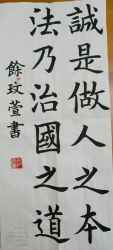 誠是做人之本
法乃治國之道
餘玟萱書